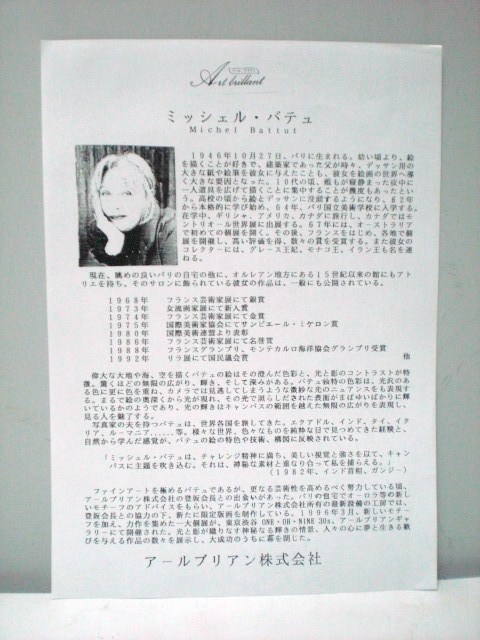 Art brillant
ミッシェル・バテュ
Michel Battut
1946年10月27日、パリに生まれる。幼い頃より、絵
を描くことが好きで、建築家であった父が時々、デッサン用の
大きな紙や絵筆を彼女に与えたことも、彼女を絵画の世界へ導
く大きな要因となった。10代の頃、誰もが寝静まった夜中に
一人道具を広げて描くことに集中することが幾度もあったとい
う。高校の頃から絵とデッサンに没頭するようになり、62年
から本格的に学び始め、64年、パリ国立美術学校に入学する
在学中、ギリシャ、アメリカ、カナダに旅行し、カナダではモ
ントリオール世界展に出展する。67年には、オーストラリア
で初めての個展を開く。その後、フランスをはじめ、各地で個
展を開催し、高い評価を得、数々の賞を受賞する。また彼女の
コレクターには、グレース王妃、モナコ王、イラン王も名を連
ねる。
現在、眺めの良いパリの自宅の他に、オルレアン地方にある15世紀以来の館にもアト
リエを持ち、そのサロンに飾られている彼女の作品は、一般にも公開されている。
1968年 フランス芸術家展にて銀賞
1973年 女流画家展にて新人賞
1974年 フランス芸術家展にて金賞
1975年 国際美術家協会にてサンピエール・ミケロン賞
1980年 国際美術連盟より表彰
1986年 フランス芸術家展にて名誉賞
1988年 フランスグランプリ、モンテカルロ海洋協会グランプリ受賞
1992年 リラ展にて国民議会賞 他
偉大な大地や海、空を描くバテュの絵はその澄んだ色彩と、光と影のコントラストが特
徴。驚くほどの無限の広がり、輝き、そして深みがある。バテュ独特の色彩は、光沢のあ
る色に更に色を重ね、カメラでは見逃してしまうような微妙な光のニュアンスをも表現す
る。まるで絵の奥深くから光が現れ、その光で照らしだされた表面がまばゆいばかりに輝
いているかのようであり、光の輝きはキャンバスの範囲を越えた無限の広がりを表現し、
見る人を魅了する。
写真家の夫を持つバテュは、世界各国を旅してきた。エクアドル、インド、タイ、イタ
リア、ルーマニア.....等。様々な世界、色々なものを純粋な目で見つめてきた経験と、
自然から学んだ感覚が、バテュの絵の特色や技術、構図に反映されている。
「ミッシェル・バテュは、チャレンジ精神に満ち、美しい視覚と強さを以て、キャン
バスに主題を吹き込む。それは、神秘な素材と重なり合って私を捕らえる。」
（1982年、インド首相、ガンジー）
ファインアートを極めるバテュであるが、更なる芸術性を高めるべく努力している頃、
アールブリアン株式会社の登坂会長との出会いがあった。パリの自宅でオーロラ等の新し
いモチーフのアドバイスをもらい、アールブリアン株式会社所有の最新設備の工房では、
登坂会長との協力の下、新たに限定版画を制作している。1996年3月、新しいモチー
フを加え、力作を集めた一大個展が、東京渋谷 ONE・OH・NINE 30s、アールブリアンギャ
ラリーにて開催された。光と影が織りなす神秘なる輝きの情景、人々の心に夢と生きる歓
びを与える作品の数々を展示し、大成功のうちに幕を閉じた。
アールブリアン株式会社